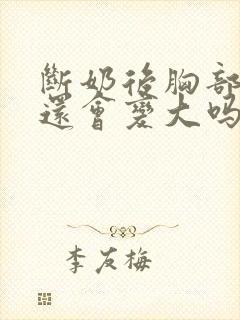 斷奶後胸部
還會變大吗
李友梅